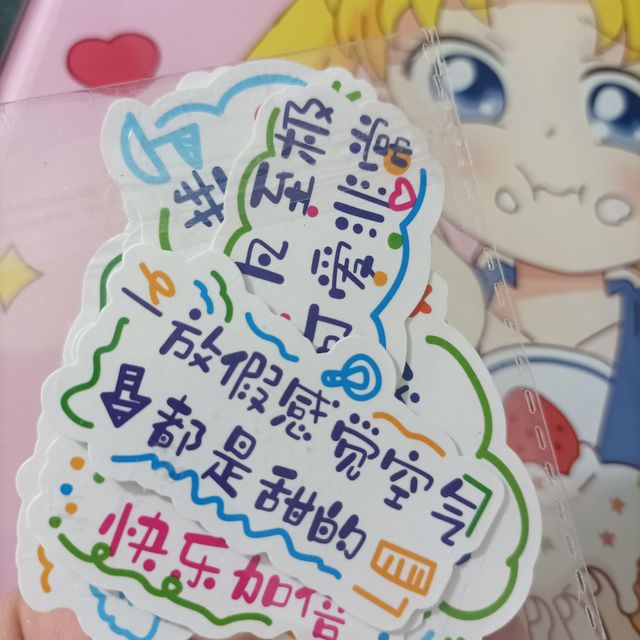 非常
可爱
至极
放假感觉空气
都是甜的
快乐加倍